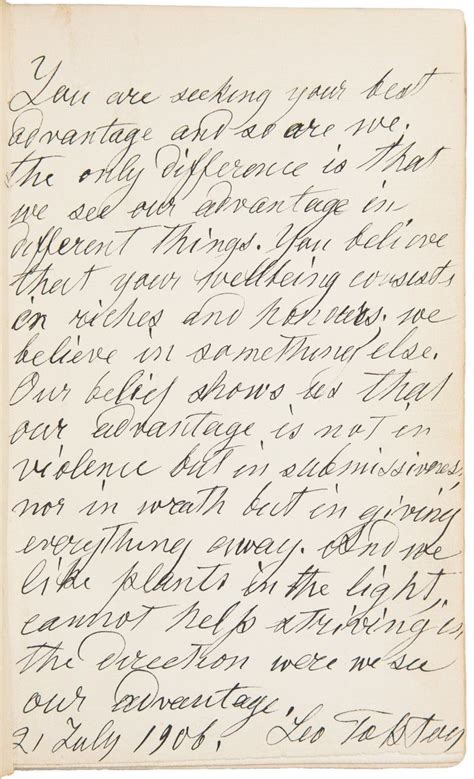 You are seeking your best
advantage and so are we.
the only difference is that
we see our advantage in
different things. You believe
that your wellbeing consists
in riches and honours, we
believe in something else.
Our belief shows us that
our advantage is not in
violence but in submissiveness,
nor in wrath but in giving
everything away. And we
like plants in the light,
cannot help striving in
the direction were we see
our advantage.
21 July 1906. Leo Tolstoy